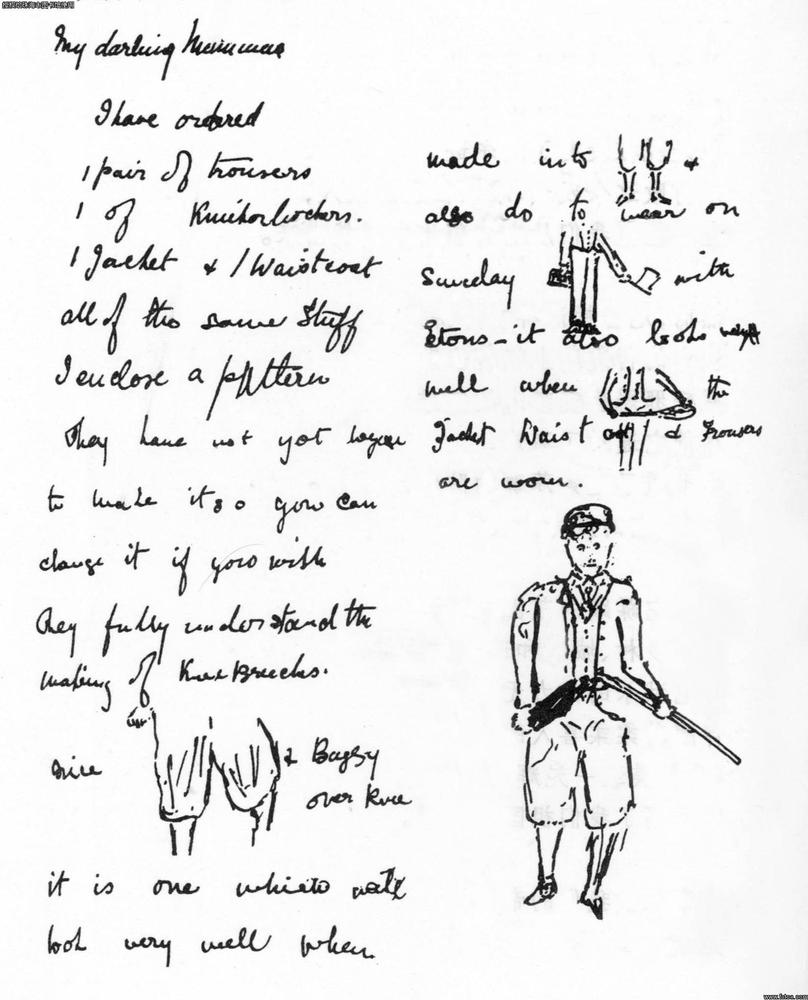 My darling Mumma
I have ordered
1 pair of trousers
1 of Knickerbockers.
1 Jacket & 1 Waistcoat
all of the same Stuff
I enclose a pattern
They have not yot begun
to make it so you can
change it if you wish
They fully understand the
making of Knee Breechs.
nice & Baggy
over knee
it is one which will
look very well when
made into &
also do to wear on
Sunday with
Etons - it also looks
well when the
Jacket Waist & Trousers
are worn.
www.fotoe.com